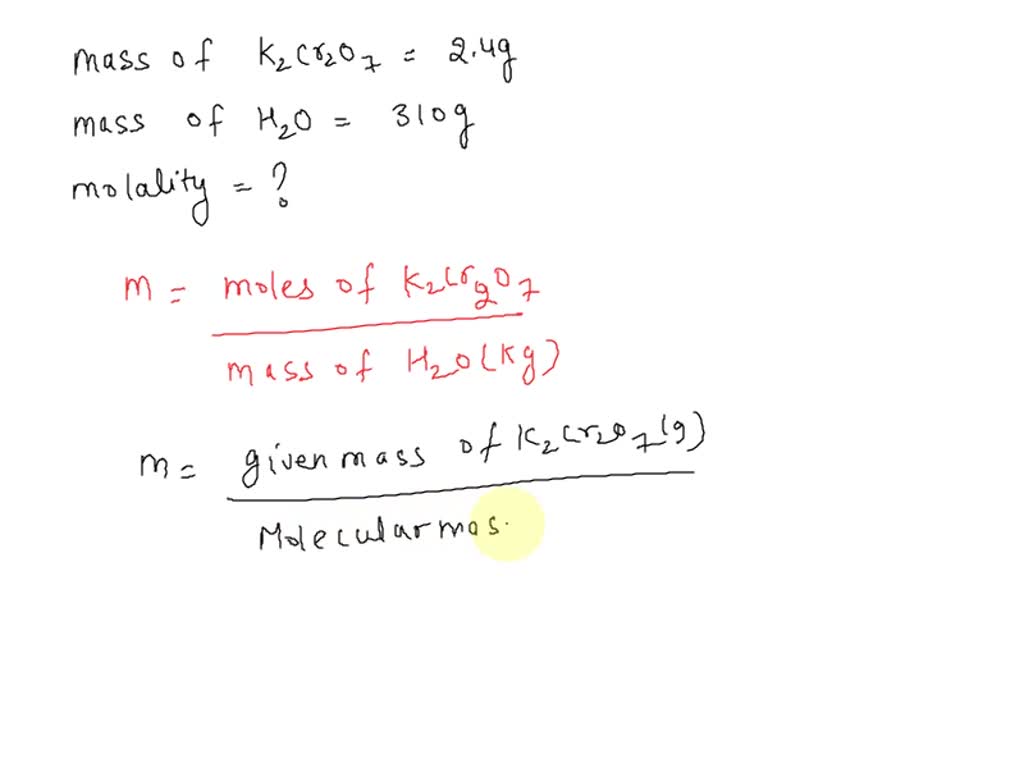 mass of K₂Cr₂O₇ = 2.4g
mass of H₂O = 310g
molality = ?
m = moles of K₂Cr₂O₇
mass of H₂O (kg)
m = given mass of K₂Cr₂O₇ (g)
Molecular mas